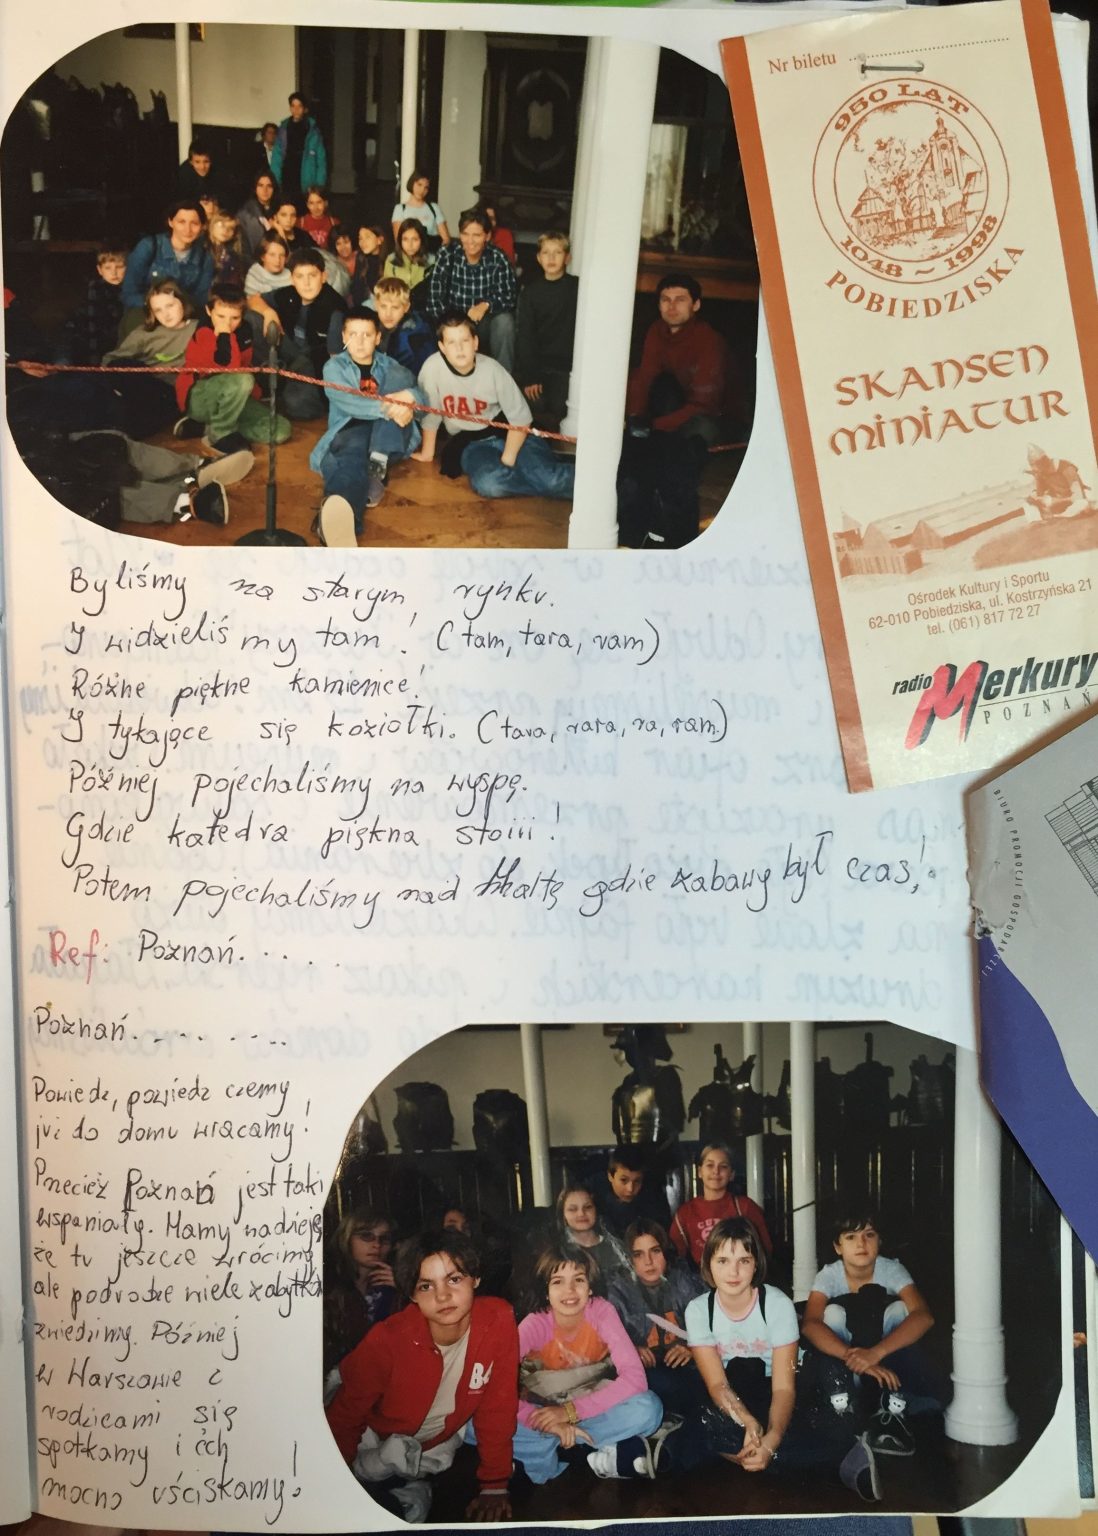 Nr biletu
950 LAT
1048 ~ 1998
POBIEDZISKA
SKANSEN
MINIATUR
Ośrodek Kultury i Sportu
62-010 Pobiedziska, ul. Kostrzyńska 21
tel. (061) 817 72 27
radio Merkury
POZNAŃ
BIURO PROMOCJI GOSPODARCZEJ
GAP
Byliśmy na starym rynku.
I widzieliśmy tam! (tam, tara, ram)
Różne piękne kamienice!
I tykające się koziołki. (tara, rara, ra, ram)
Później pojechaliśmy na wyspę.
Gdzie katedra piękna stoiii!
Potem pojechaliśmy nad Maltę gdzie zabawy był czas!
Ref: Poznań. . . . .
Poznań. . . . . . .
Powiedz, powiedz czemy
już do domu wracamy!
Przecież Poznań jest taki
wspaniały. Mamy nadzieję
że tu jeszcze wrócimy
ale podrodze wiele zabytków
zwiedzimy. Później
w Warszawie z
rodzicami się
spotkamy i ich
mocno uściskamy!